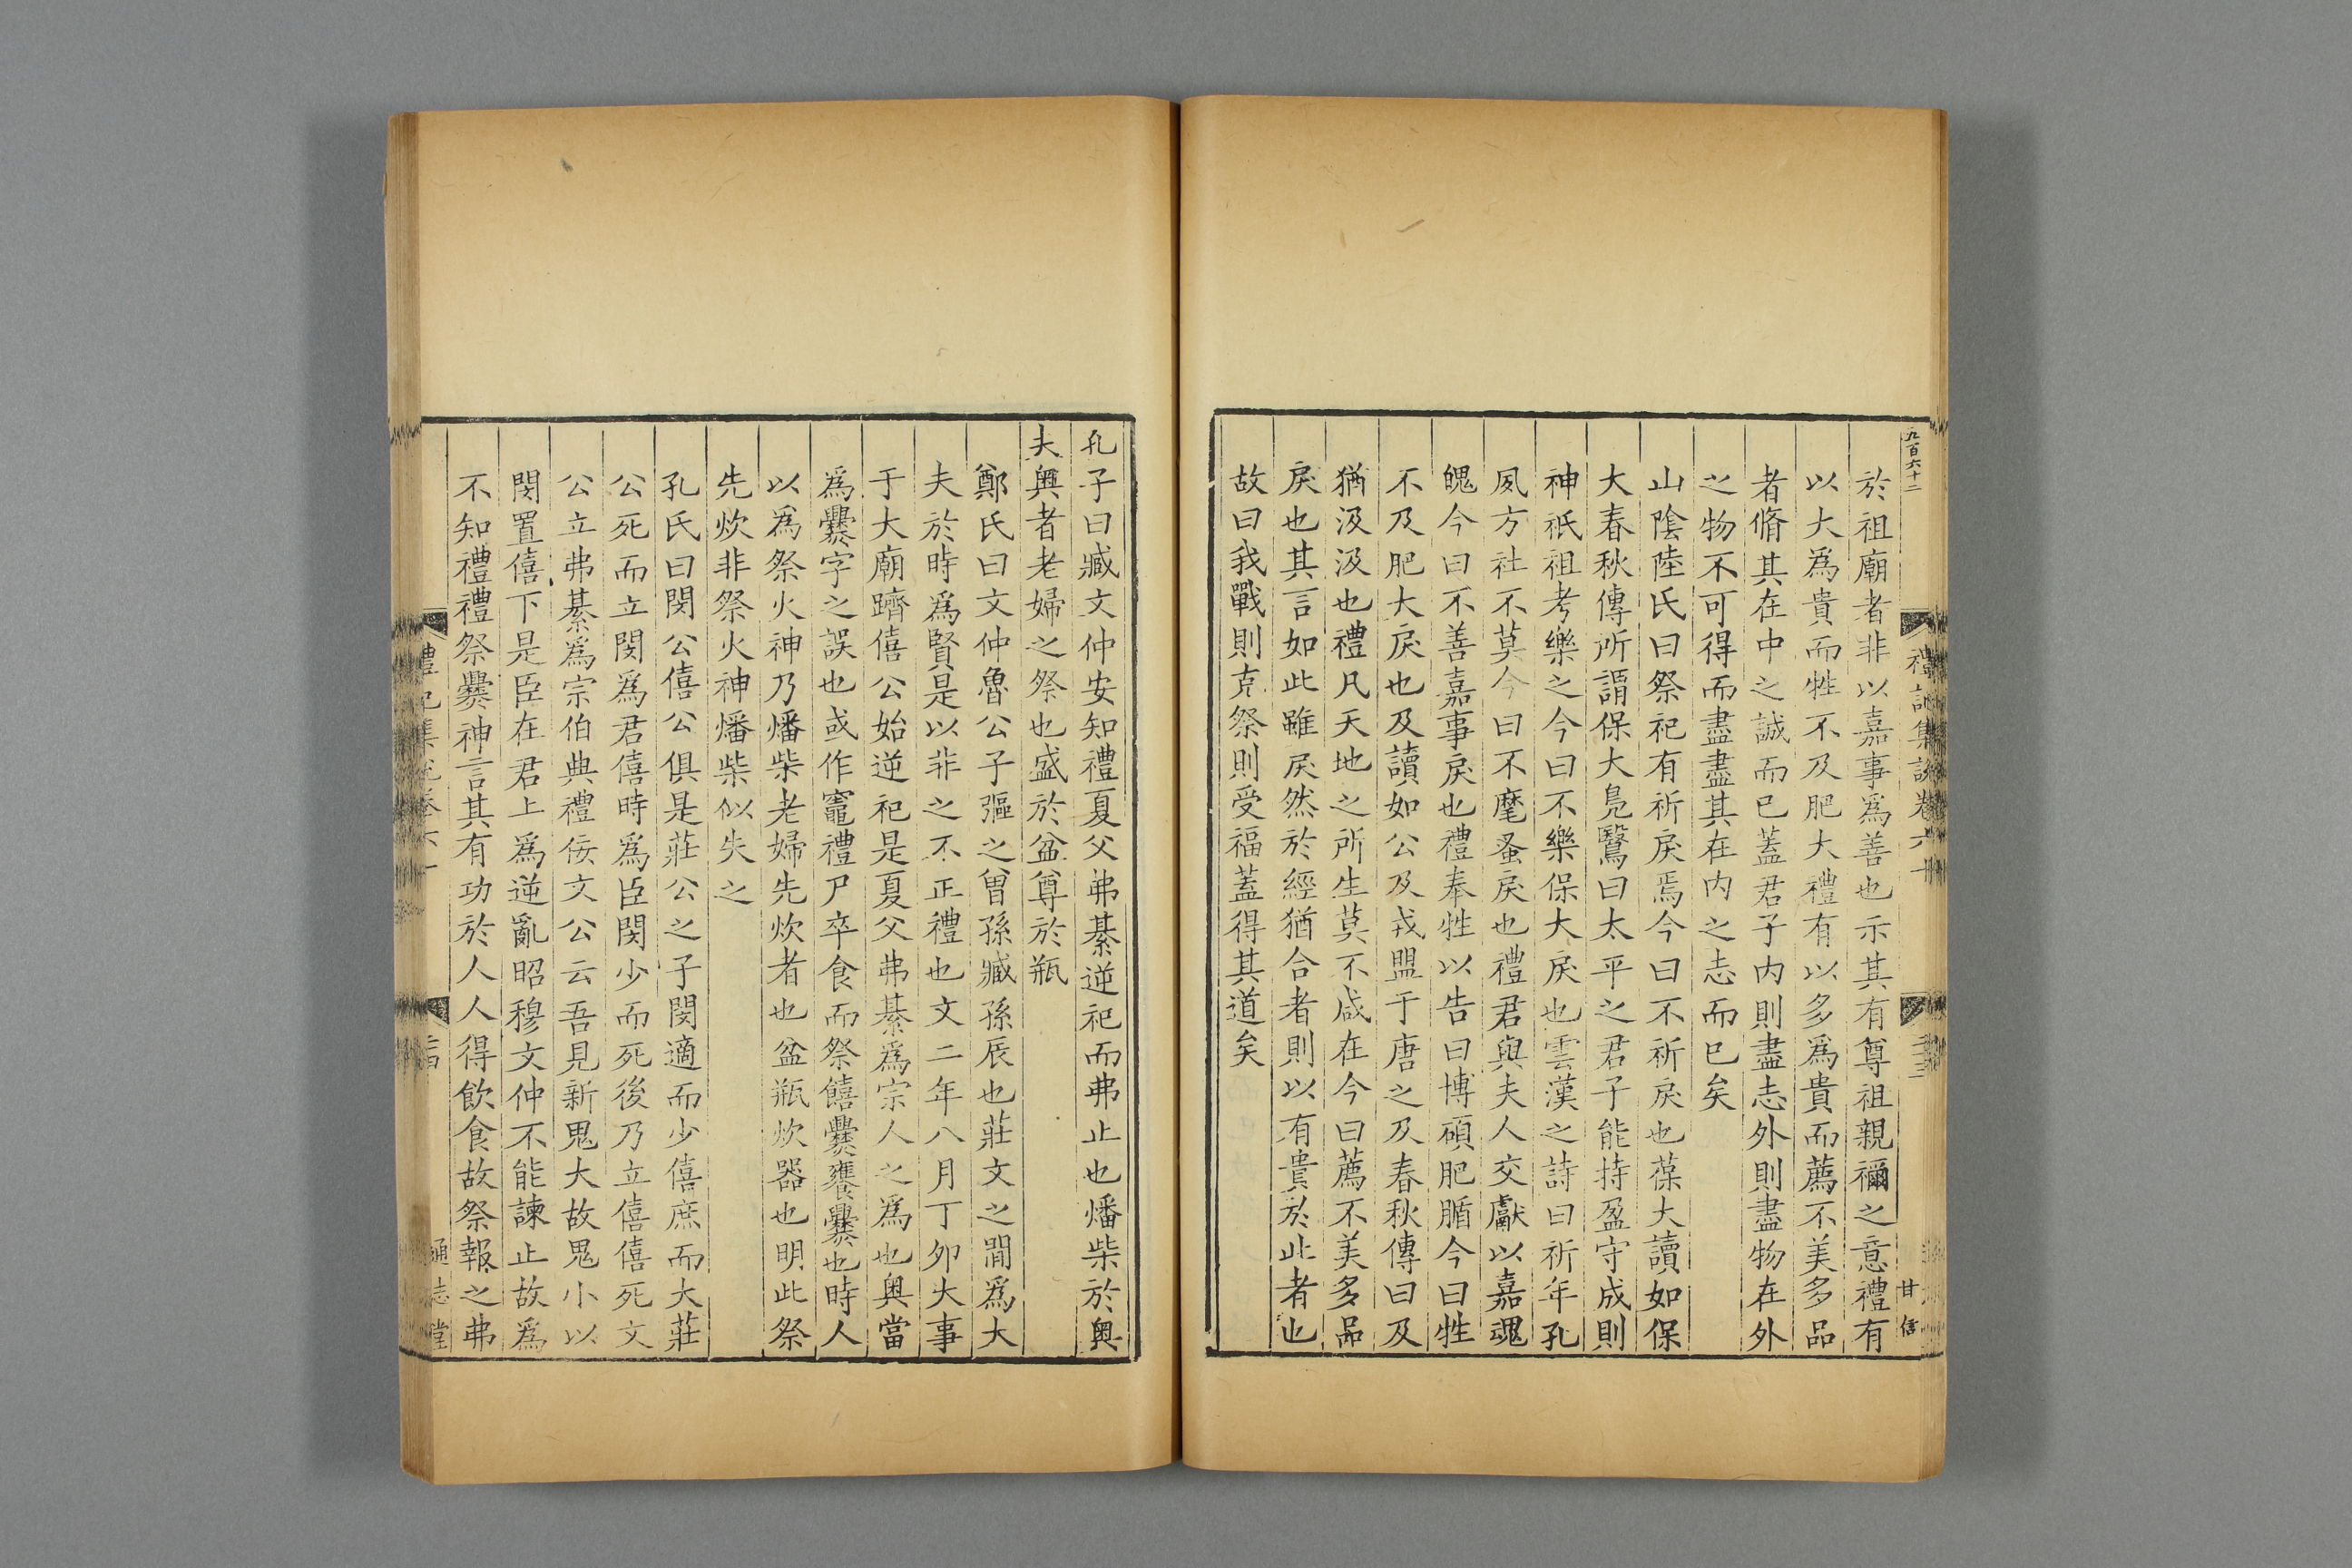 九百六十二
於祖廟者非以嘉事為善也示其有尊祖親禰之意禮有
以大為貴而牲不及肥大禮有以多為貴而薦不美多品
者脩其在中之誠而已蓋君子内則盡志外則盡物在外
之物不可得而盡盡其在内之志而已矣
山陰陸氏曰祭祀有祈戾焉今曰不祈戾也葆大讀如保
大春秋傳所謂保大鳧鷖曰太平之君子能持盈守成則
神祇祖考樂之今曰不樂保大戾也雲漢之詩曰祈年孔
夙方社不莫今曰不麾蚤戾也禮君與夫人交獻以嘉魂
魄今曰不善嘉事戾也禮奉牲以告曰博碩肥腯今曰牲
不及肥大戾也及讀如公及戎盟于唐之及春秋傳曰及
猶汲汲也禮凡天地之所生莫不咸在今曰薦不美多品
戾也其言如此雖戾然於經猶合者則以有貴於此者也
故曰我戰則克祭則受福蓋得其道矣
禮記集說卷六十
甘信
孔子曰臧文仲安知禮夏父弗綦逆祀而弗止也燔柴於奧
夫奧者老婦之祭也盛於盆尊於瓶
鄭氏曰文仲魯公子彄之曾孫臧孫辰也莊文之閒為大
夫於時為賢是以非之不正禮也文二年八月丁卯大事
于大廟躋僖公始逆祀是夏父弗綦為宗人之為也奧當
為爨字之誤也或作竈禮尸卒食而祭饎爨饔爨也時人
以為祭火神乃燔柴老婦先炊者也盆瓶炊器也明此祭
先炊非祭火神燔柴似失之
孔氏曰閔公僖公俱是莊公之子閔適而少僖庶而大莊
公死而立閔為君僖時為臣閔少而死後乃立僖僖死文
公立弗綦為宗伯典禮佞文公云吾見新鬼大故鬼小以
閔置僖下是臣在君上為逆亂昭穆文仲不能諫止故為
不知禮禮祭爨神言其有功於人人得飲食故祭報之弗
通志堂